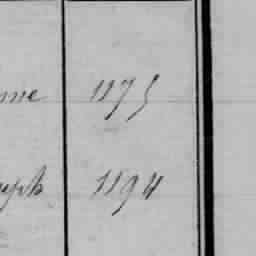 nne 1175
seph 1194